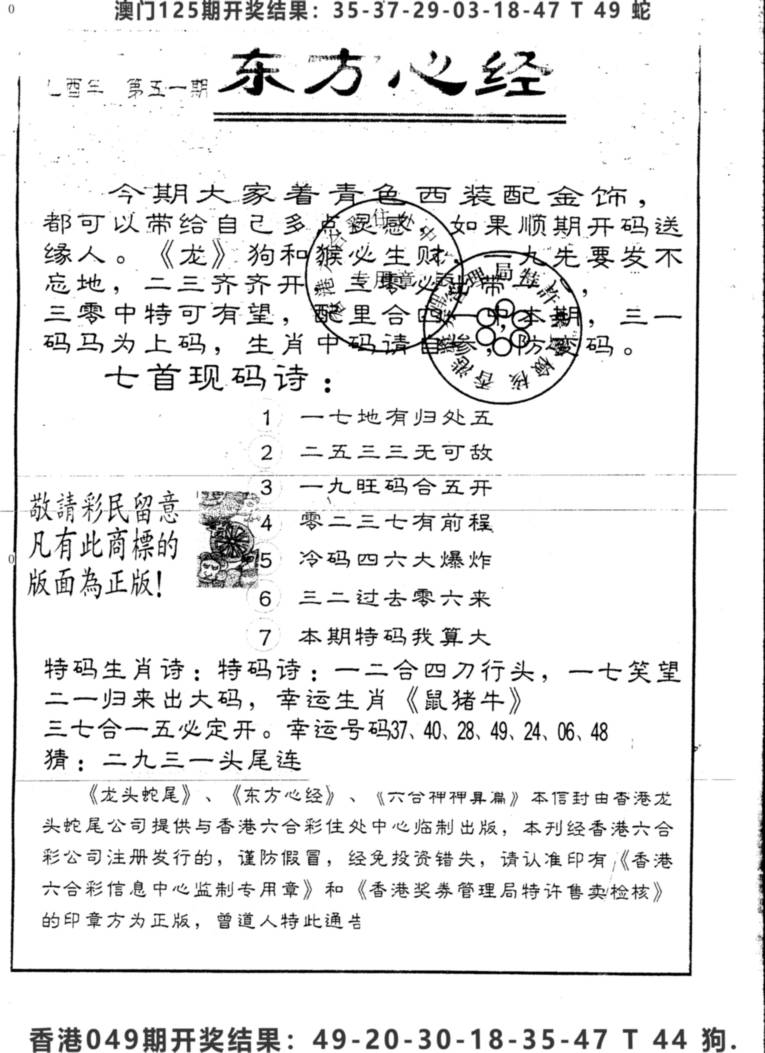 澳门125期开奖结果：35-37-29-03-18-47 T 49 蛇
酉年 第五一期
东方心经
今期大家着青色西装配金饰，
都可以带给自己多点灵感，如果顺期开码送
缘人。《龙》狗和猴必生财，一九先要发不
忘地，二三齐齐开，三零必出带一
三零中特可有望，配里合四一中本期，三一
码马为上码，生肖中码请自参，防变码。
七首现码诗：
1 一七地有归处五
2 二五三三无可敌
3 一九旺码合五开
4 零二三七有前程
5 冷码四六大爆炸
6 三二过去零六来
7 本期特码我算大
敬請彩民留意
凡有此商標的
版面為正版！
特码生肖诗：特码诗：一二合四刀行头，一七笑望
二一归来出大码，幸运生肖《鼠猪牛》
三七合一五必定开。幸运号码37、40、28、49、24、06、48
猜：二九三一头尾连
《龙头蛇尾》、《东方心经》、《六合神神算篇》本信封由香港龙
头蛇尾公司提供与香港六合彩住处中心临制出版，本刊经香港六合
彩公司注册发行的，谨防假冒，经免投资错失，请认准印有《香港
六合彩信息中心监制专用章》和《香港奖券管理局特许售卖检核》
的印章方为正版，曾道人特此通告
香港049期开奖结果：49-20-30-18-35-47 T 44 狗.